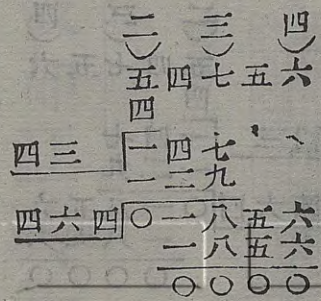 二) 三) 四)
五四七五六
四
四三 一四七、、
一二九
四六四 〇一八五六
一八五六
〇〇〇〇